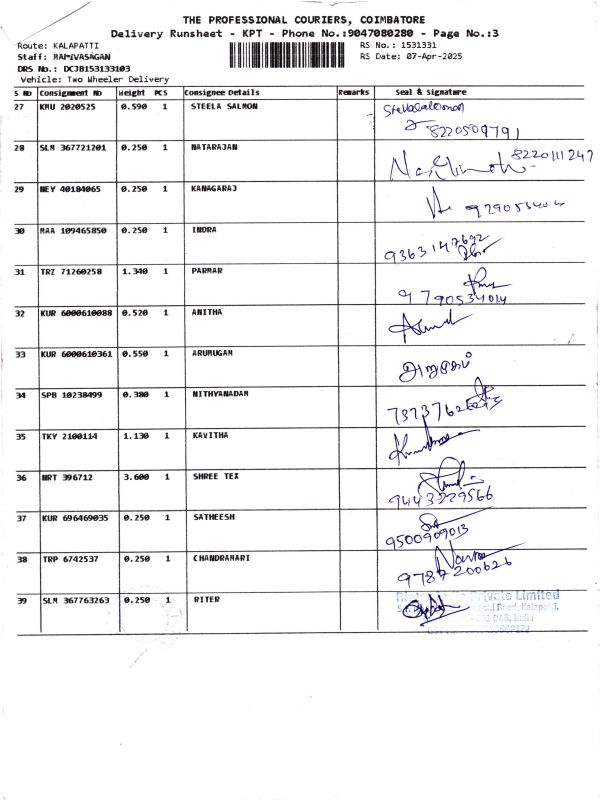 THE PROFESSIONAL COURIERS, COIMBATORE
Delivery Runsheet - KPT - Phone No.:9047080280 - Page No.:3
Route: KALAPATTI RS No.: 1531331
Staff: MANIVASAGAN RS Date: 07-Apr-2025
DRS No.: DCJB153133103
Vehicle: Two Wheeler Delivery
S NO Consignment No Weight PCS Consignee Details Remarks Seal & Signature
27 KMU 2020525 0.590 1 STEELA SALMON
8220509791
28 SLM 367721201 0.250 1 NATARAJAN 8220111247
29 NEY 40184065 0.250 1 KANAGARAJ
30 MAA 109465850 0.250 1 INDRA 9363147692
31 TRZ 71260258 1.340 1 PARMAR
9790534014
32 KUR 6000610088 0.520 1 ANITHA
33 KUR 6000610361 0.550 1 ARUMUGAM அறுமுகம்
34 SPB 10238499 0.380 1 NITHYANADAM
35 TKY 2100114 1.130 1 KAVITHA
36 NRT 396712 3.600 1 SHREE TEX
9443229566
37 KUR 696469035 0.250 1 SATHEESH
9500909013
38 TRP 6742537 0.250 1 CHANDRAMARI
9787200626
39 SLM 367763263 0.250 1 RITER
Private Limited
Road, Kalapatti,
India